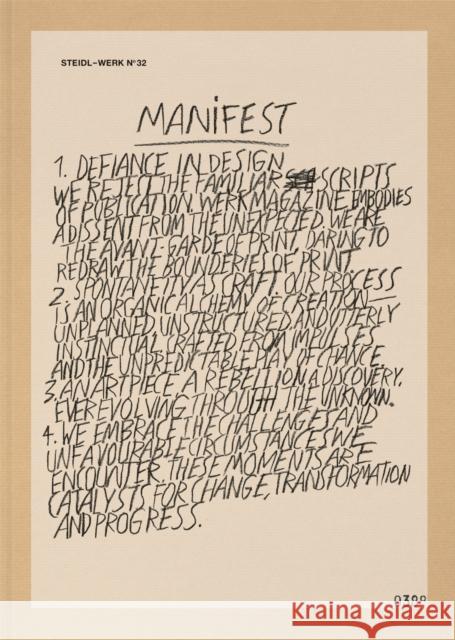 STEIDL–WERK Nº32
MANIFEST
1. DEFIANCE IN DESIGN
WE REJECT THE FAMILIAR SCRIPTS
OF PUBLICATION. WERK MAGAZINE EMBODIES
A DISSENT FROM THE UNEXPECTED. WE ARE
THE AVANT-GARDE OF PRINT, DARING TO
REDRAW THE BOUNDERIES OF PRINT
2. SPONTANEITY AS CRAFT. OUR PROCESS
IS AN ORGANIC ALCHEMY OF CREATION—
UNPLANNED, UNSTRUCTURED AND UTTERLY
INSTINCTUAL, CRAFTED FROM IMPULSES
AND THE UNPREDICTABLE PLAY OF CHANCE
3. AN ART PIECE A REBELLION, A DISCOVERY,
EVER EVOLVING THROUGH THE UNKNOWN.
4. WE EMBRACE THE CHALLENGES AND
UNFAVOURABLE CIRCUMSTANCES WE
ENCOUNTER. THESE MOMENTS ARE
CATALYSTS FOR CHANGE, TRANSFORMATION
AND PROGRESS.